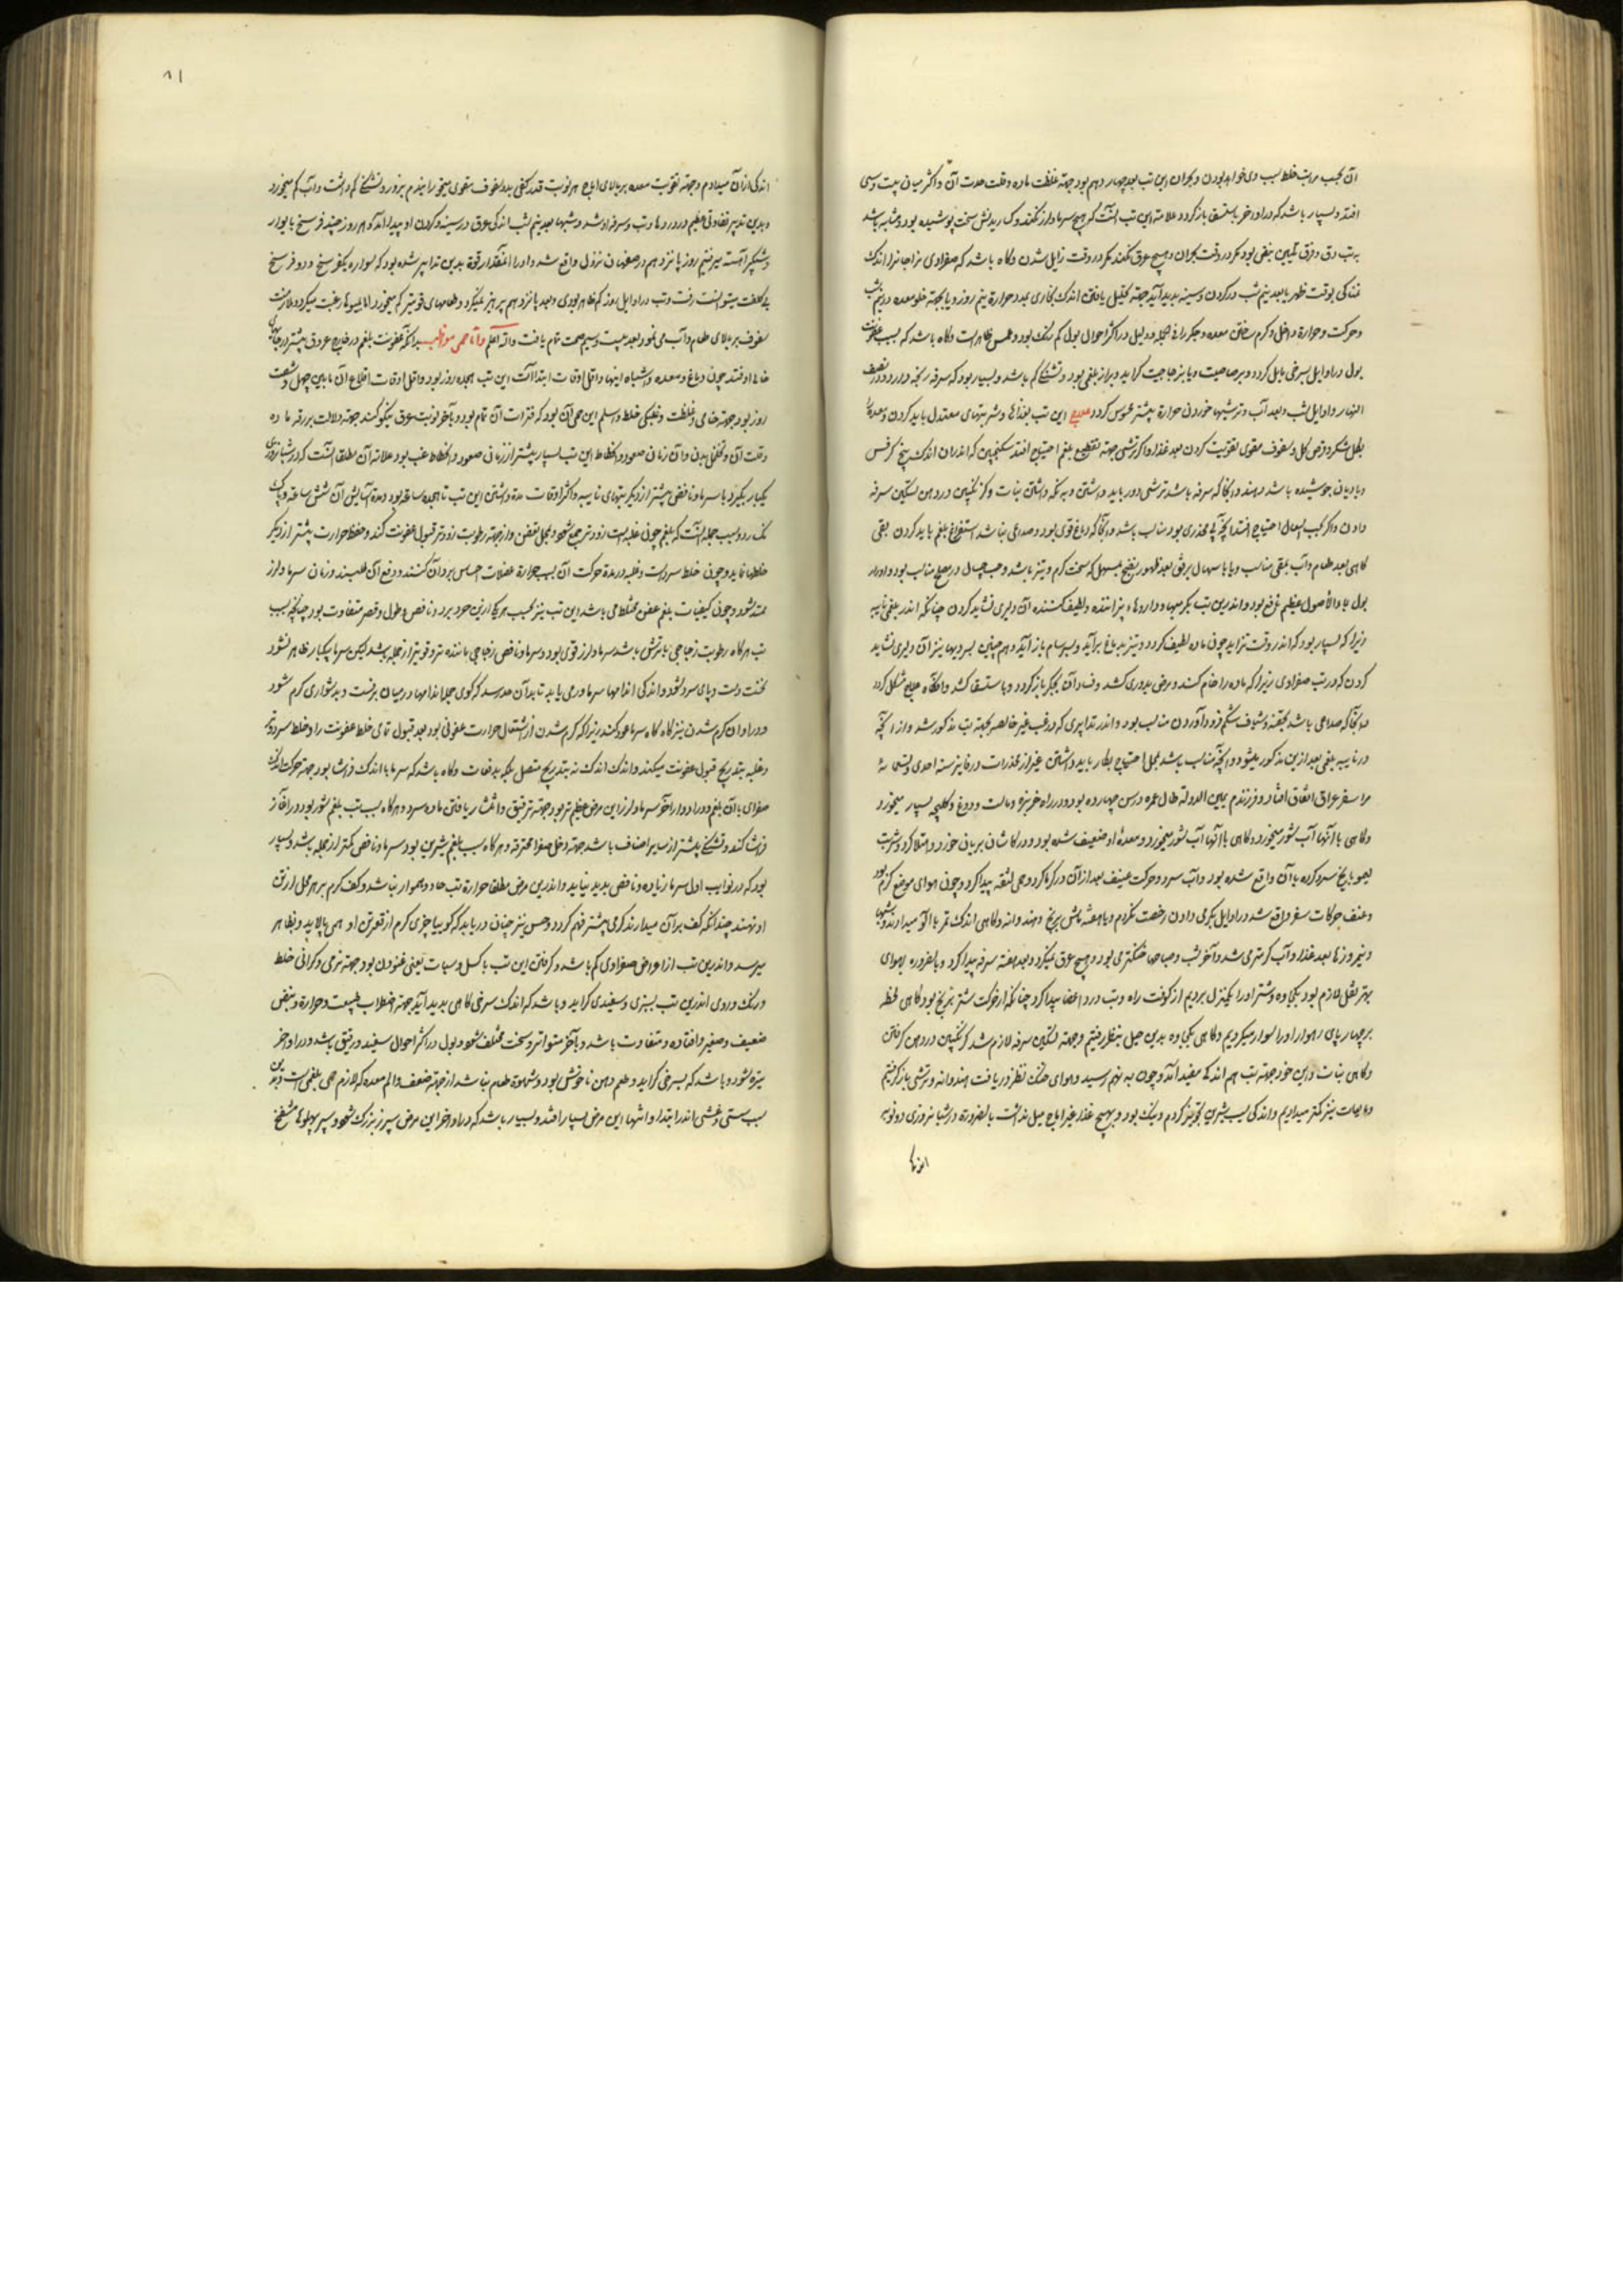 آن بحسب مراتب خلط سبب وی خواهد بودن و بحران این تب بعد چهاردهم بود جهة غلظت ماده و قلت حدت آن و اکثر میان بیست و سی
افتد و بسیار باشد که در اواخر باستسقا بازگردد علامة این تب آنست که هیچ سرما و لرز نکند و رسخت پوشیده بود و مشابه باشد
به تب دق و فرق بین بنبض بود مگر در وقت بحران و هیچ عرق نکند مگر در وقت زایل شدن و گاه باشد که صفراوی مزاجانرا اندک
بوقت ظهر یا بعد نیم شب در گردن و سینه پدید آید جهة تحلیل یافتن اندک بخاری بعد و حرارة نیم روز و یا بجهة خلو معده در نیم شب
و حرکت و حرارة داخلی و گرم ساختن معده و جگر و دلیل در اکثر احوال بول کم رنگ بود و ظاهر است و گاه باشد که بسبب عفونت
بول در اوایل بسرخی مایل گردد و براز بلغمی بود و تشنگی کم باشد و بسیار بود که سرفه رنجه دارد و در نصف
النهار و اوایل شب و بعد آب و ترشیها خوردن حرارة بیشتر محسوس گردد علاج این تب بغذاها و شربتهای معتدل باید کردن و معده را
بگل شکر و قرص گل و سفوف مقوی تقویت کردن بعد غذا و اگر ترشی جهة تقطیع بلغم احتیاج افتد سکنجبین که اندران اندک بیخ کرفس
و بادیان جوشیده باشد دهند و آنجا که سرفه باشد ترشی دور باید داشتن و به نگه داشتن نبات و ترنجبین در دهن تسکین سرفه
دادن و اگر بحسب اسهال احتیاج افتد آنچه بی محذری بود مناسب باشد و آنجا که دماغ قوی بود و صداعی نباشد استفراغ بلغم باید کردن بقی
گاهی بعد طعام و آب بقی مناسب و یا باسهال برفق بعد ظهور نضج بمسهل که سخت گرم و تیز نباشد و حب در صبح مناسب بود و ادرار
بول با ماء الاصول عظیم نافع بود و اندرین تب بگرمیها و داروهاء پزاننده و لطیف کننده آن دلیری نشاید کردن چنانکه اندر بلغمی نایبه
زیرا که بسیار بود که اندر وقت تزاید چون ماده لطیف گردد و تیز بدماغ برآید و بسرسام بازآید و همچنین بسردیها نیز آن دلیری نشاید
کردن که در تب صفراوی زیرا که ماده را خام کند و مرض بدوری کشد و فساد آن بجگر بازگردد و باستسقا کشد و آنگاه علاج مشکل گردد
و آنجا که صداعی باشد بحقنه و شیاف شکم فرود آوردن مناسب بود و اندر تدابیری که در غب غیر خالصه بجهة تب مذکور شد و از آنچه
در نایبه بلغمی بعد ازین مذکور میشود و آنچه مناسب باشد بمحل احتیاج بکار باید داشتن غیر از مخدرات و فایز سنه احدی و تسعمائه
مرا سفر عراق اتفاق افتاد و فرزندم یمین الدوله طال عمره در سن چهارده بود و در راه خربزه و ماست و دوغ و کلیچه بسیار میخورد
و گاهی با آنها آب شور میخورد و معده او ضعیف شده بود و در کاشان بریان خورد و امتلا کرد و شربت
لیمو با یخ سرد کرده با آن واقع شده بود و آب سرد و حرکت عنیف بعد از آن در گرما کرد و حمی لثقه پیدا کرد و چون هوای موضع گرم بود
و عنف حرکات سفر واقع شد در اوایل بگرمی دادن رخصت نکردم و تا هفته ماش برنج و هندوانه و گاهی اندک تمر با آلو میدادند و شبها
و نیم روزها بعد غذا و آب گرمتر می شد و آخر شب و صباحها خنکتر می بود و هیچ عرق نمیکرد و بعد هفته سرفه پیدا کرد و بالضروره بهوای
بهتر نقل لازم بود بکجاوه و شتر او را یکمنزل بردیم از کوفت راه و تب درد اعضا پیدا کرد چنانکه از حرکت شتر برنج بود گاهی لحظه
بر چهارپای رهوار او را سوار میکردیم و گاهی بکجاوه بدین حیل بنطنز رفتیم و جهة تسکین سرفه لازم شد ترنجبین در دهن گرفتن
و گاهی نبات و این خود جهة تب هم اندکی مفید آمد و چون به نهم رسید و هوای خنک نطنز دریافت هندوانه و ترشی بازگرفتیم
و مایعات نیز کمتر میدادیم و اندکی سیب شیرین تجویز کردم و نیک بود و بهیچ غذا غیر اماج میل نداشت بالضرورة در شبانروزی دو نوبه
اندکی
۸۱
اندکی از آن میدادم و جهة تقویت معده بر بالای اماج هر نوبت قدر کفی بدو سفوف مقوی میخورانیدم بزور و تشنگی کم داشت و آب کم میخورد
و بدین تدبیر تفاوتی عظیم در دردها و تب و سرفه او شد و شبها بعد نیم شب اندکی عرق در سینه و گردن او پیدا آمد و هر روز چند فرسخ با یوار
و شبگیر آهسته میرفتیم روز پانزدهم در صفهان نزول واقع شد و او را آنقدر قوة بدین تدابیر شده بود که سواره یکفرسخ و دو فرسخ
بی کلفت میتوانست رفت و تب در اوایل روز کم ظاهر بودی و بعد پانزدهم پرهیز نمیکرد و طعامهای قویتر کم میخورد اما بمیوها رغبت میکرد و ملازمت
سفوف بر بالای طعام و آب می نمود و بعد بیست و سیم صحت تمام یافت والله اعلم و اما حمی مواظبه بدانکه عفونت بلغم در خارج عروق بیشتر در جاهای
خالی افتد چون دماغ و معده و اشباه اینها و اقل اوقات ابتدا آن این تب هجده روز بود و اقل اوقات اقلاع آن مابین چهل و شصت
روز بود جهة خامی و غلظت خلط و سلیم این حمی آن بود که فترات آن تمام بود و بآخر نوبت عرق نیکو کند جهة دلالت بر رقه ماده
و قلت آن و تخلخل بدن و آن زمان صعود و انحطاط این تب بسیار بیشتر از زمان صعود و انحطاط غب بود علامة آن مطلقا آنست که در شبانروزی
یکبار بگیرد با سرما و نافضی بیشتر از دیگر تبهای نایبه و اکثر اوقات مدة داشتن این تب تا هجده ساعة بود و مدة آسایش آن شش ساعة و پاک
نگذارد و سبب جمله آنست که بلغم چون غلبه است زودتر جمع شود بمحل تعفن و از جهة رطوبت زودتر قبول عفونت کند و حفظ حرارت بیشتر از دیگر
خلطها نماید و چون خلط سرد است و غلبه در مدة حرکت آن بسبب حرارة عضلات احساس برد آن کنند و دفع آن طلبند و زمان سرما و لرز
ممتد شود و چون کیفیات بلغم عفن مختلط می باشد این تب نیز بحسب هر یک ازین خود در برد و نافض و طول و قصر متفاوت بود چنانچه سبب
تب هرگاه رطوبت زجاجی یا ترش باشد سرما و لرز قوی بود و سرما و نافض زجاجی ماننده تر و قویتر از جمله باشد لیکن سرما بیکبار ظاهر نشود
نخست دست و پای سرد شود و اندکی اندامها سرما درمی یابد تا بدان حد رسد که گوی جمله اندامها در میان برفست و بدشواری گرم شود
و در اوان گرم شدن نیز گاه گاه سرما عود کند زیرا که گرم شدن از اشتعال حرارت عفونی بود بعد قبول تمامی خلط عفونت را و خلط سرد و تر
و غلبه بتدریج قبول عفونت میکند و اندک اندک نه بتدریج متصل بلکه بدفعات و گاه باشد که سرما با اندک فراشا بود جهة حرکت اندک
صفرای با آن بلغم و در ادوار آخر سرما و لرز این مرض عظیم تر بود جهة ترقیق و انتشار یافتن ماده سرد و هرگاه سبب تب بلغم شور بود در آغاز
فراشا کند و تشنگی بیشتر از سایر اصناف باشد جهة دخل صفرا محترقه و هرگاه سبب بلغم شیرین بود سرما و نافض کمتر از جمله باشد و بسیار
بود که در نوایب اول سرما زیاده و نافض پدید نیاید و اندرین مرض مطلقا حرارة تب حاد و هموار نباشد و کف گرم بر هر محل از تن
او نهند چندانکه کف بر آن میدارند گرمی بیشتر فهم گردد و حس نیز چنان دریابد که گوییا چیزی گرم از قعر تن او همی بالاید و بظاهر
میرسد و اندرین تب از اعراض صفراوی کم باشد و گرفتن این تب با کسل و سبات یعنی غنودن بود جهة نرمی و گرانی خلط
و رنگ و روی اندرین تب بسبزی و سفیدی گراید و باشد که اندک سرخی گاهی پدید آید جهة اضطراب طبیعت و حرارة و نبض
ضعیف و صغیر و افتاده و متفاوت باشد و بآخر متواتر و سخت مختلف شود و بول در اکثر احوال سفید و رقیق باشد و در اواخر
تیزه شود و باشد که بسرخی گراید و طعم دهن ناخوش بود و شهوة طعام نباشد از جهة ضعف و الم معده که لازم حمی بلغمی است و بدین
سبب سستی و غشی اندر ابتداء و انتهاء این مرض بسیار افتد و بسیار باشد که در اواخر این مرض سپرز بزرگ شود و سر پهلوها منتفخ